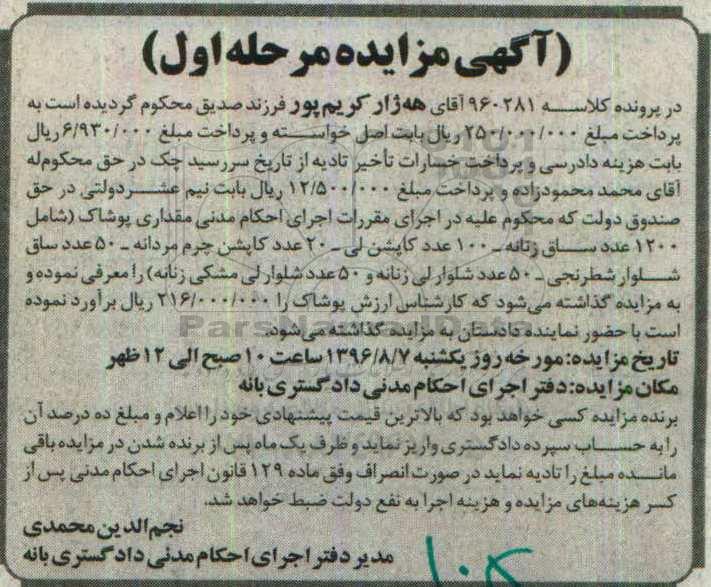 (آگهی مزایده مرحله اول)
در پرونده کلاسه ۹۶۰۲۸۱ آقای هه ژار کریم پور فرزند صدیق محکوم گردیده است به
پرداخت مبلغ ۲۵۰/۰۰۰/۰۰۰ ریال بابت اصل خواسته و پرداخت مبلغ ۶/۹۳۰/۰۰۰ ریال
بابت هزینه دادرسی و پرداخت خسارات تأخیر تادیه از تاریخ سررسید چک در حق محکوم‌له
آقای محمد محمودزاده و پرداخت مبلغ ۱۲/۵۰۰/۰۰۰ ریال بابت نیم عشر دولتی در حق
صندوق دولت که محکوم علیه در اجرای مقررات اجرای احکام مدنی مقداری پوشاک (شامل
۱۲۰۰ عدد ساق زنانه ـ ۱۰۰ عدد کاپشن لی ـ ۲۰ عدد کاپشن چرم مردانه ـ ۵۰ عدد ساق
شلوار شطرنجی ـ ۵۰ عدد شلوار لی زنانه و ۵۰ عدد شلوار لی مشکی زنانه) را معرفی نموده و
به مزایده گذاشته می‌شود که کارشناس ارزش پوشاک را ۲۱۶/۰۰۰/۰۰۰ ریال برآورد نموده
است با حضور نماینده دادستان به مزایده گذاشته می‌شود.
تاریخ مزایده: مورخه روز یکشنبه ۱۳۹۶/۸/۷ ساعت ۱۰ صبح الی ۱۲ ظهر
مکان مزایده: دفتر اجرای احکام مدنی دادگستری بانه
برنده مزایده کسی خواهد بود که بالاترین قیمت پیشنهادی خود را اعلام و مبلغ ده درصد آن
را به حساب سپرده دادگستری واریز نماید و ظرف یک ماه پس از برنده شدن در مزایده باقی
مانده مبلغ را تادیه نماید در صورت انصراف وفق ماده ۱۲۹ قانون اجرای احکام مدنی پس از
کسر هزینه‌های مزایده و هزینه اجرا به نفع دولت ضبط خواهد شد.
نجم‌الدین محمدی
مدیر دفتر اجرای احکام مدنی دادگستری بانه
ParsNamadData